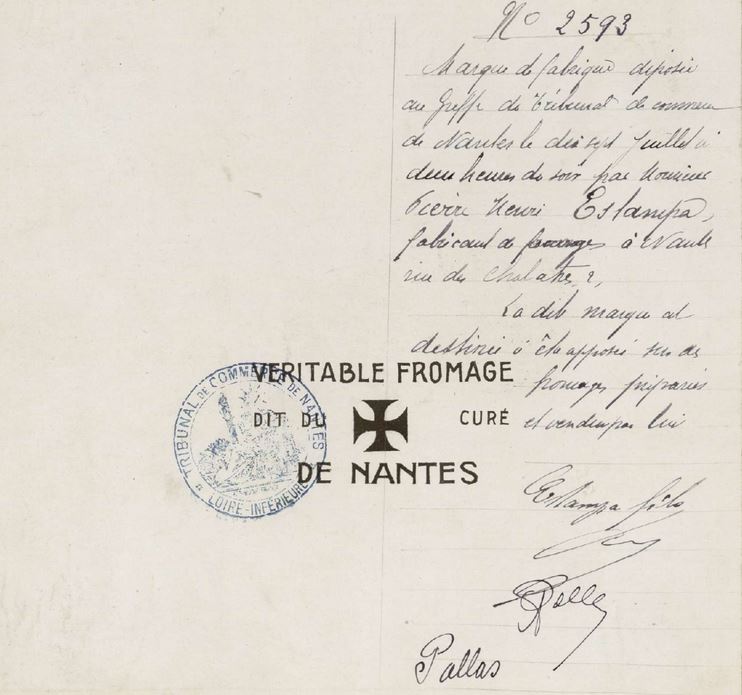 N° 2593
Marque de fabrique déposée
au Greffe du Tribunal de commerce
de Nantes le dix sept Juillet à
deux heures du soir par Monsieur
Pierre Henri Estampa,
fabricant de fromages à Nantes
rue des 2,
La dite marque est
destinée à être apposée sur des
fromages préparés
et vendus par lui
VERITABLE FROMAGE
DIT DU CURÉ
DE NANTES
TRIBUNAL DE COMMERCE DE NANTES
LOIRE-INFÉRIEURE
Estampa fils
Pallas